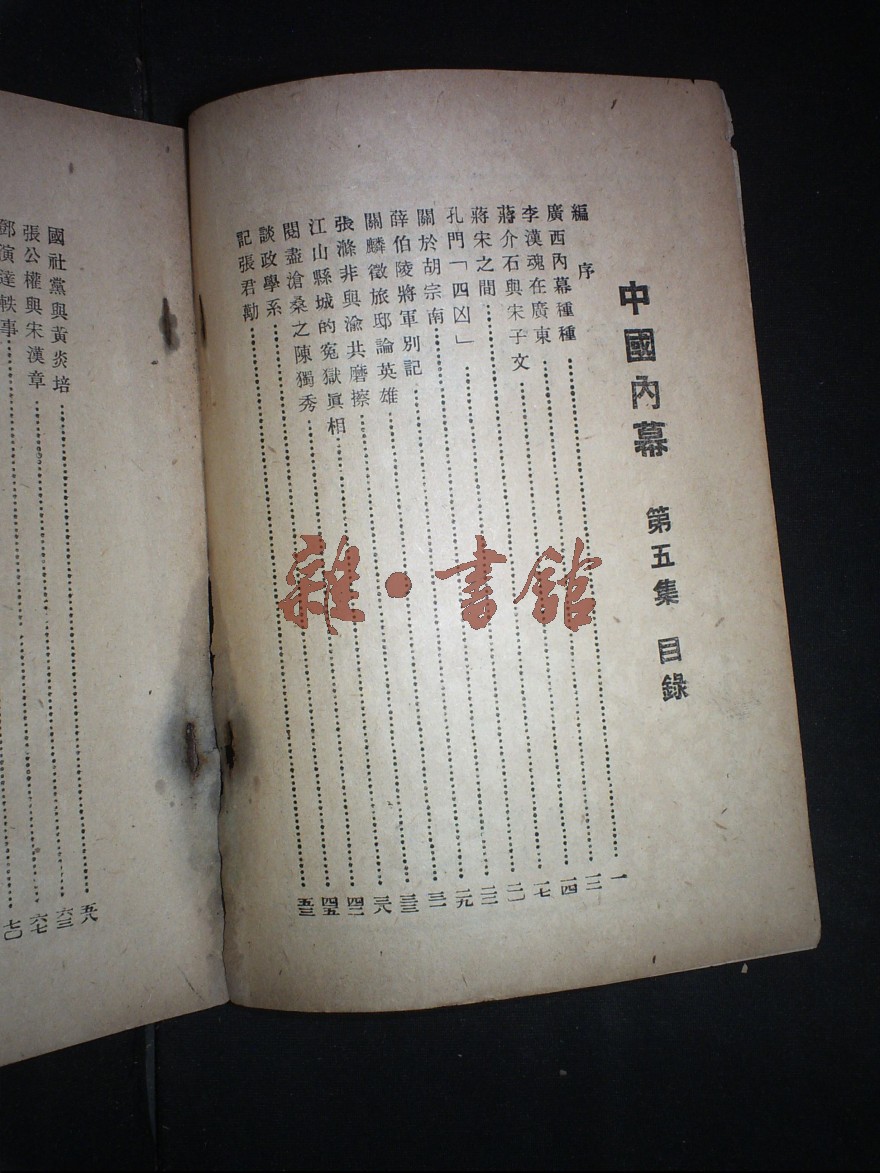 中國內幕 第五集 目錄
編序
廣西內幕種種 一
李漢魂在廣東 一二
蔣介石與宋子文 一四
蔣宋之間 一七
孔門「四凶」 二〇
關於胡宗南 二二
薛伯陵將軍別記 二九
關麟徵旅邸論英雄 三一
張滌非與渝共磨擦 三三
江山縣城的冤獄眞相 三八
閱盡滄桑之陳獨秀 四二
談政學系 四五
記張君勱 五三
國社黨與黃炎培 五八
張公權與宋漢章 六三
鄧演達軼事 六七
七〇
雜·書館